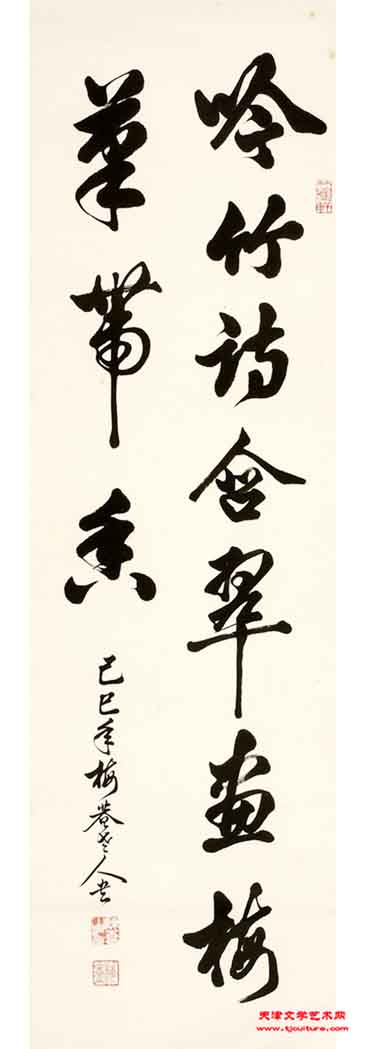 吟竹詩含翠画梅
筆帯香
己巳年梅菴老人書
天津文学艺术网
www.tjculture.com